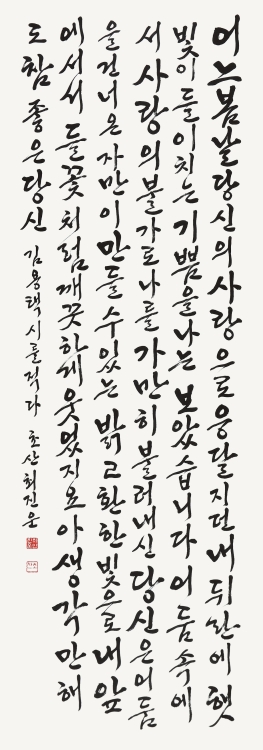 어느 봄날 당신의 사랑으로 응달지던 내 뒤란에 햇
빛이 들이치는 기쁨을 나는 보았습니다 어둠 속에
서 사랑의 불가로 나를 가만히 불러내신 당신은 어둠
을 건너온 자만이 만들 수 있는 밝고 환한 빛으로 내 앞
에 서서 들꽃처럼 깨끗하게 웃었지요 아 생각만 해
도 참 좋은 당신
김용택 시를 적다 초산 최진운